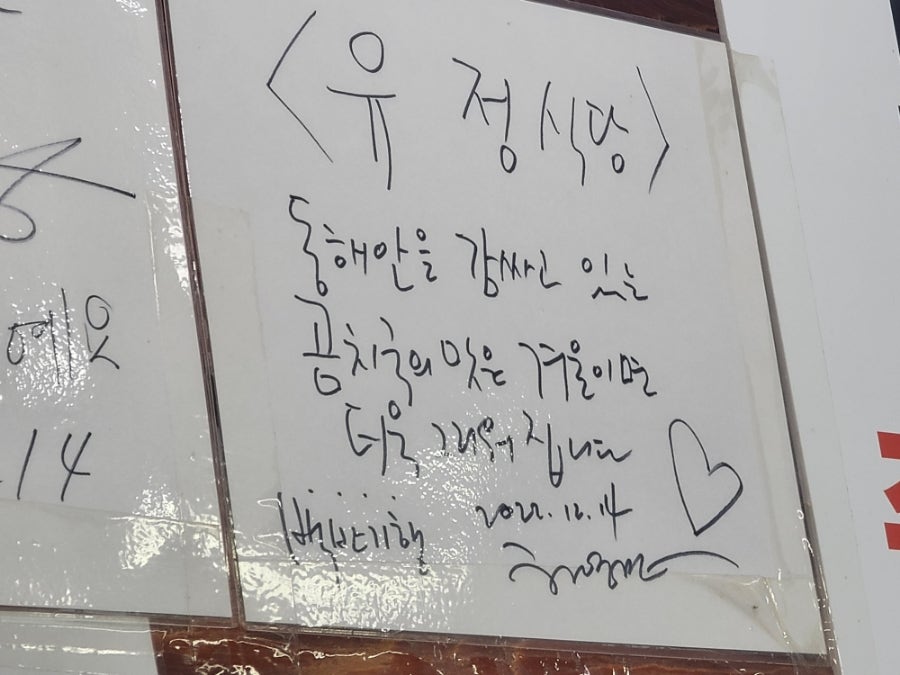 <유정식당>
동해안을 감싸고 있는
곰치국의 맛은 겨울이면
더욱 그리워집니다
백반기행 2022.12.14
예요
.14